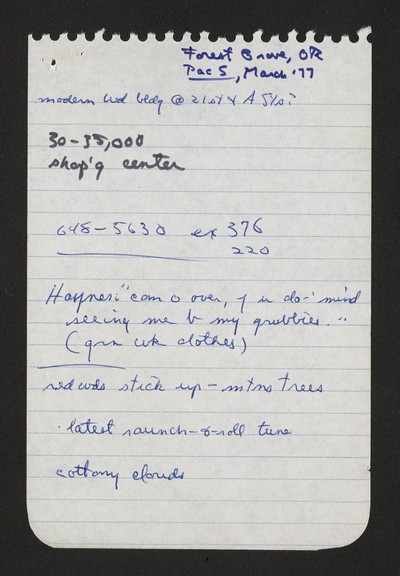 Forest Grove, OR
Pac S, March '77
modern wd bldg @ 21st & A Sts?
30-35,000
shop'g center
648-5630 ex 376
220
Haynes: "com o over, if u do-' mind
seeing me b my grubbies."
(grn wk clothes)
redwds stick up - mtns trees
· latest raunch-&-roll tune
cottony clouds